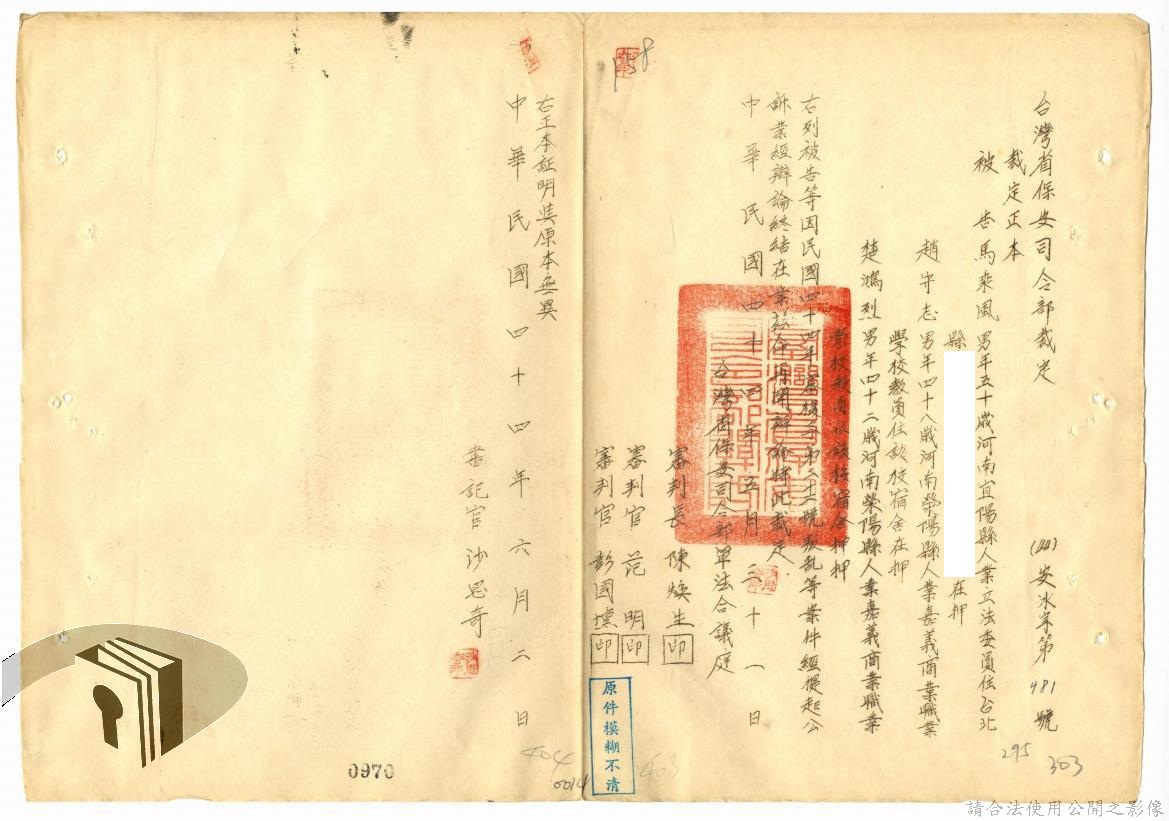 台灣省保安司令部裁定
(44)安氷宋第481號
裁定正本
被告馬乘風男年五十歲河南宜陽縣人業立法委員住台北
縣
在押
趙守志男年四十八歲河南榮陽縣人業嘉義商業職業
學校教員住該校宿舍在押
楚鴻烈男年四十二歲河南榮陽縣人業嘉義商業職業
學校教員住該校宿舍押
右列被告等因民國四十四年度 第三十二號叛乱等案件經提起公
訴業經辯論終結在案茲命再開辯論特此裁定
中華民國四十四年五月三十一日
台灣省保安司令部軍法合議庭
審判長 陳煥生 印
審判官 范明 印
審判官 彭國壎 印
原件模糊不清
右正本証明與原本無異
中華民國四十四年六月二日
書記官 沙思奇
295
303
403
404
0014
0970
請合法使用公開之影像